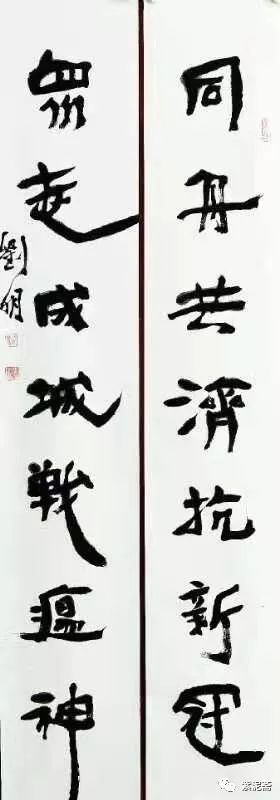 同舟共濟抗新冠
眾志成城戰瘟神
劉明